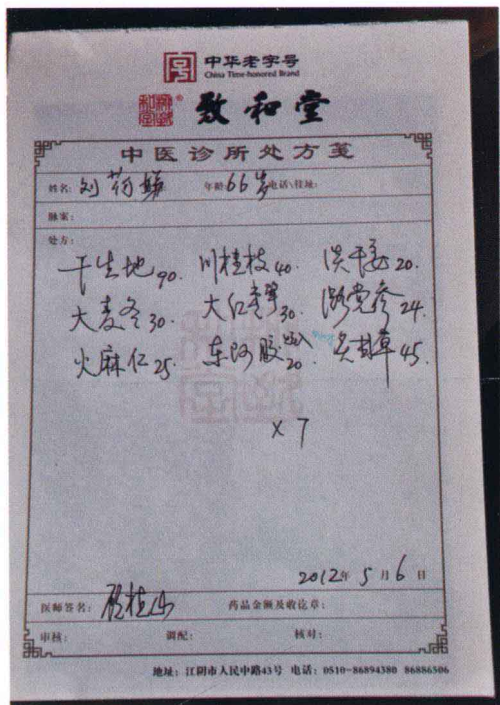 中华老字号
China Time-honored Brand
致和堂
中医诊所处方笺
姓名: 刘 年龄66岁 电话\住址:
脉案:
处方:
干生地90. 川桂枝40. 淡干姜20.
大麦冬30. 大红枣30. 潞党参24.
火麻仁25. 东阿胶20. 炙甘草45.
×7
2012年 5月6日
医师签名: 药品金额及收讫章:
审核: 调配: 核对:
地址: 江阴市人民中路43号 电话: 0510-86894380 86886506